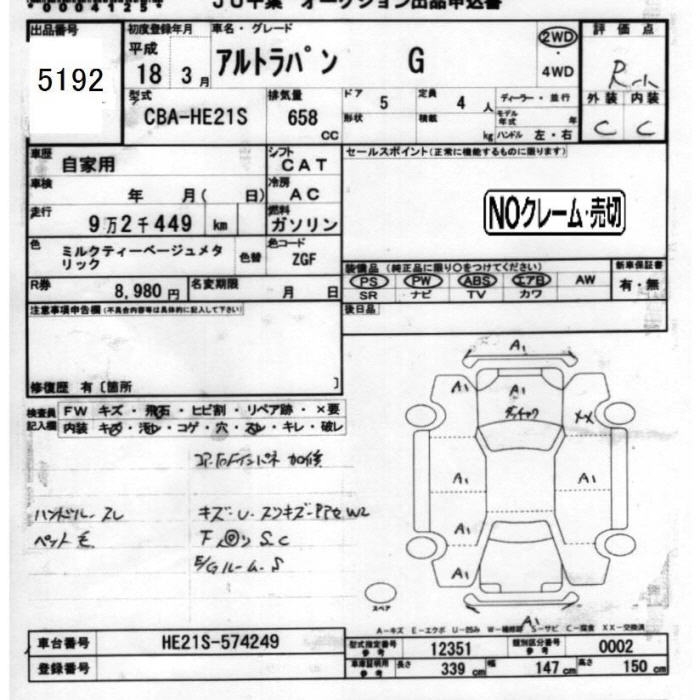 JU千葉 オークション出品申込書
出品番号 5192
初度登録年月 平成 18 3月
車名・グレード アルトラパン G
2WD ・ 4WD
評価点 R
外装 内装 C C
型式 CBA-HE21S
排気量 658 CC
ドア 5 定員 4 人
形状 積載 kg
ディーラー・並行
モデル年式 年
ハンドル 左・右
車歴 自家用
シフト CAT
セールスポイント(正常に機能するものに限ります)
車検 年 月( 日)
冷房 AC
走行 9万2千449 km
燃料 ガソリン
NOクレーム・売切
色 ミルクティーベージュメタリック
色替 色コード ZGF
装備品 (純正品に限り○をつけてください)
PS PW ABS エアB AW
SR ナビ TV カワ
新車保証書 有・無
R券 8,980 円
名変期限 月 日
後日品
注意事項申告欄(不具合内容等は具体的に記入して下さい)
修復歴 有〔箇所 〕
検査員記入欄
FW キズ・飛石・ヒビ割・リペア跡・×要
内装 キズ・汚れ・コゲ・穴・スレ・キレ・破レ
ハンドル スレ
ペット毛
キズ・U・スリキズ
S C
E/Gルーム S
A1
A1 A1
XX
A1 A1
A1
A1
A1
スペア
A-キズ E-エクボ U-凹み W-補修跡 S-サビ C-腐食 XX-交換済
車台番号 HE21S-574249
型式指定番号 参考 12351
類別区分番号 参考 0002
登録番号
車庫証明用 参考 長さ 339 cm 幅 147 cm 高さ 150 cm